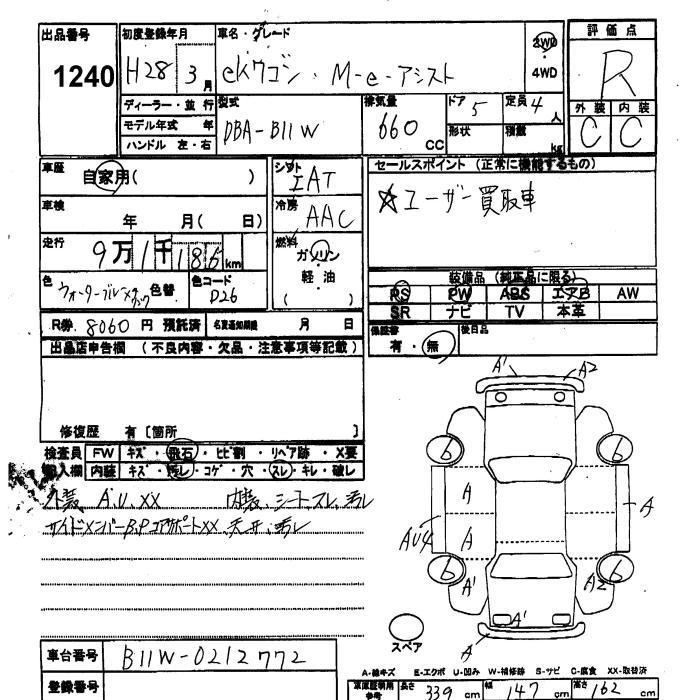 出品番号 初度登録年月 車名・グレード 評価点
1240 H28 3月 eKワゴン・M-e-アシスト 2WD 4WD R
ディーラー・並行 型式 排気量 ドア 5 定員 4人 外装 内装
モデル年式 年 DBA-B11W 660CC 形状 積載 kg C C
ハンドル 左・右
車歴 自家用( ) シフト IAT セールスポイント (正常に機能するもの)
車検 年 月( 日) 冷房 AAC ☆ユーザー買取車
走行 9万1千185km 燃料 ガソリン・軽油( )
色 色替 色コード D26 装備品 (純正品に限る)
RS PW ABS エアB AW
SR ナビ TV 本革
R券 8060円 預託済 名変通知期限 月 日 保証書 有・無 後日品
出品店申告欄 (不良内容・欠品・注意事項等記載)
修復歴 有〔箇所 〕
検査員 FW キズ・飛石・ヒビ割・リペア跡・X要
記入欄 内装 キズ・汚レ・コゲ・穴・スレ・キレ・破レ
外装 A.U.XX 内装、シートスレ、汚レ
サイドメンバーB,Pコアサポート XX、天井、汚レ
A' A2
b b
A A
AU4 A
b b
A' A2
A'
A
スペア
車台番号 B11W-0212772
登録番号
A-線キズ E-エクボ U-凹み W-補修跡 S-サビ C-腐食 XX-取替済
車庫証明用参考 長さ 339cm 幅 147cm 高さ 162cm